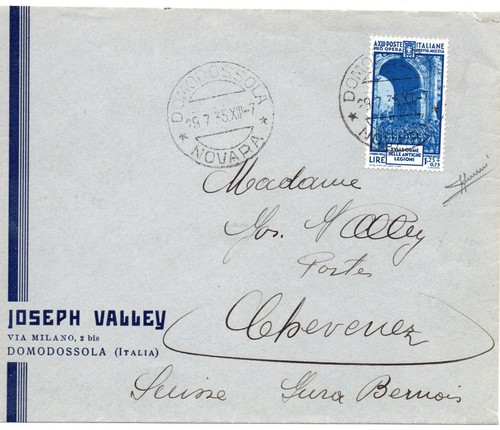 DOMODOSSOLA
29.7.35.XIII-7
* NOVARA *
DOMO
9.7.35.X
* NOVARA
A.XIII-POSTE ITALIANE
PRO OPERA PREVID. MILIZIA
SULLE ORME
DELLE ANTICHE
LEGIONI
LIRE 1,75+
0,75
Madame
Jos. Valley
Postes
Chevenez
Suisse Jura Bernois
JOSEPH VALLEY
VIA MILANO, 2 bis
DOMODOSSOLA (ITALIA)